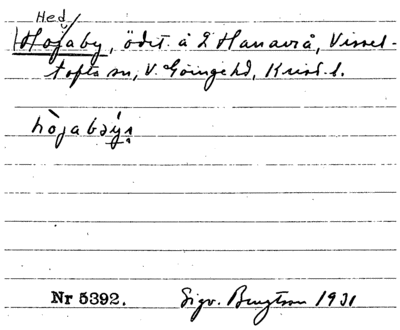 Hed
Hojaby, ödet. å 2 Hanaurå, Vissel-
tofta sn, V. Göinge hd, Krist. l.
hòjabýn
Nr 5392. Sigv. Bengtson 1931